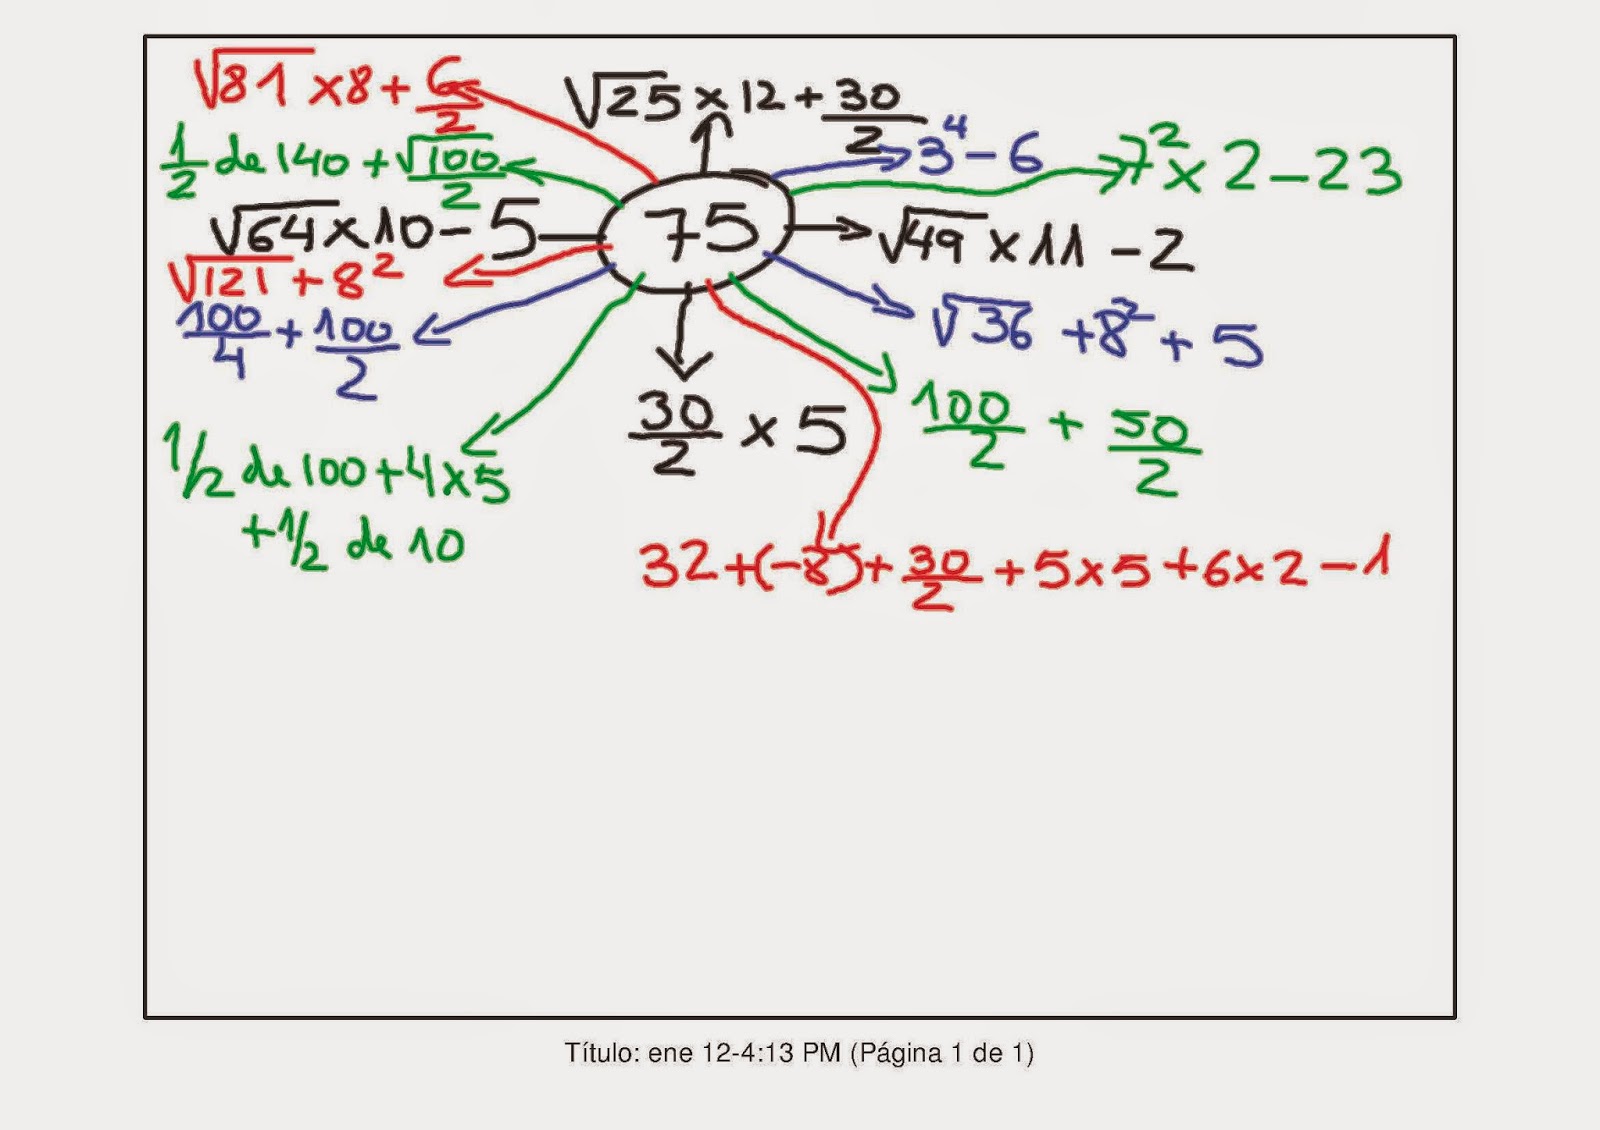 √81 x 8 + 6/2
√25 x 12 + 30/2
3⁴ - 6
7² x 2 - 23
1/2 de 140 + √100/2
√64 x 10 - 5
75
√49 x 11 - 2
√121 + 8²
100/4 + 100/2
√36 + 8² + 5
30/2 x 5
100/2 + 50/2
1/2 de 100 + 4 x 5
+ 1/2 de 10
32 + (-8) + 30/2 + 5 x 5 + 6 x 2 - 1
Título: ene 12-4:13 PM (Página 1 de 1)